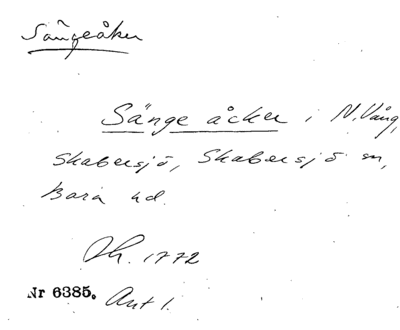 Sängeåker
Sänge åcker i N. Vång,
Skabersjö, Skabersjö sn,
Bara hd.
1772
Nr 6385. Ant 1.